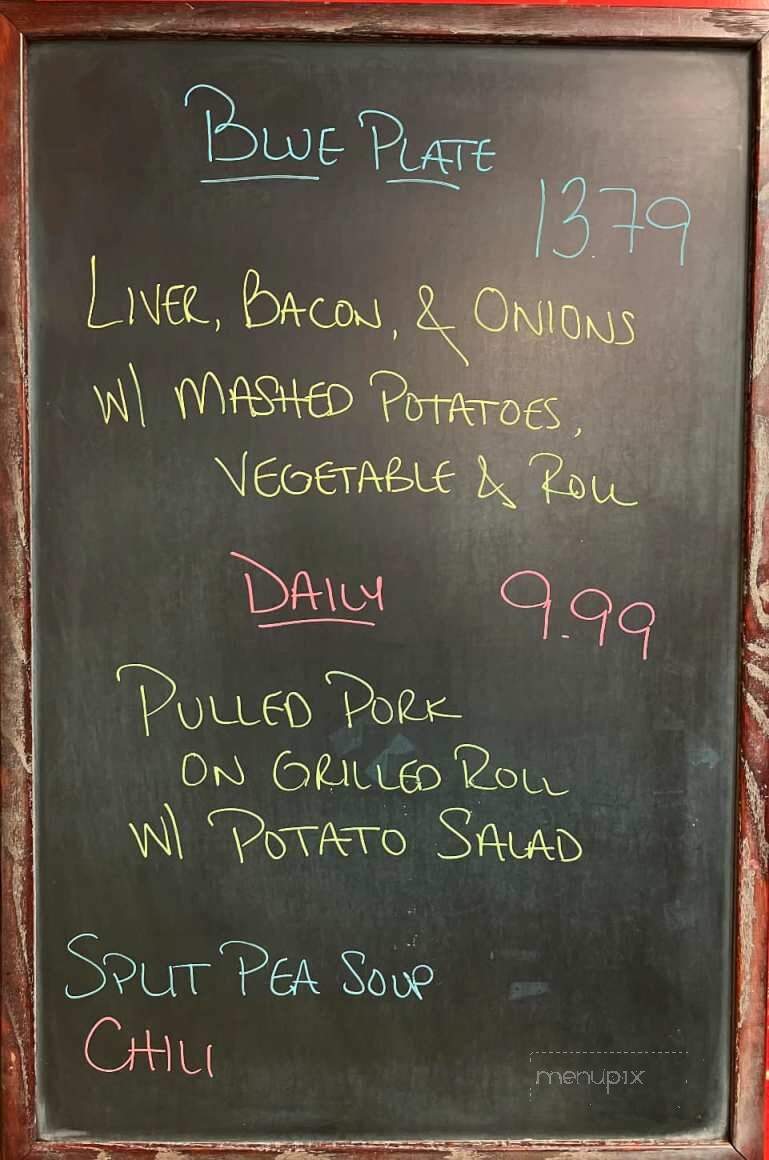 BLUE PLATE
13.79
LIVER, BACON, & ONIONS
W/ MASHED POTATOES,
VEGETABLE & ROLL
DAILY 9.99
PULLED PORK
ON GRILLED ROLL
W/ POTATO SALAD
SPLIT PEA SOUP
CHILI
menupix